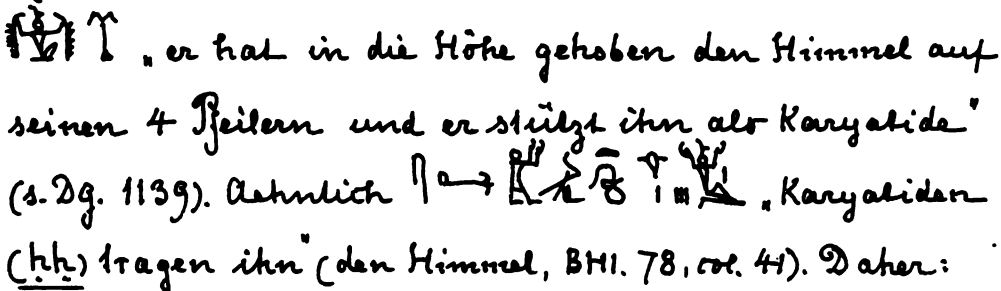 „er hat in die Höhe gehoben den Himmel auf
seinen 4 Pfeilern und er stützt ihn als Karyatide"
(s. Dg. 1139). Aehnlich „Karyatiden
(ḥḥ) tragen ihn" (den Himmel, BHI. 78, col. 41). Daher: